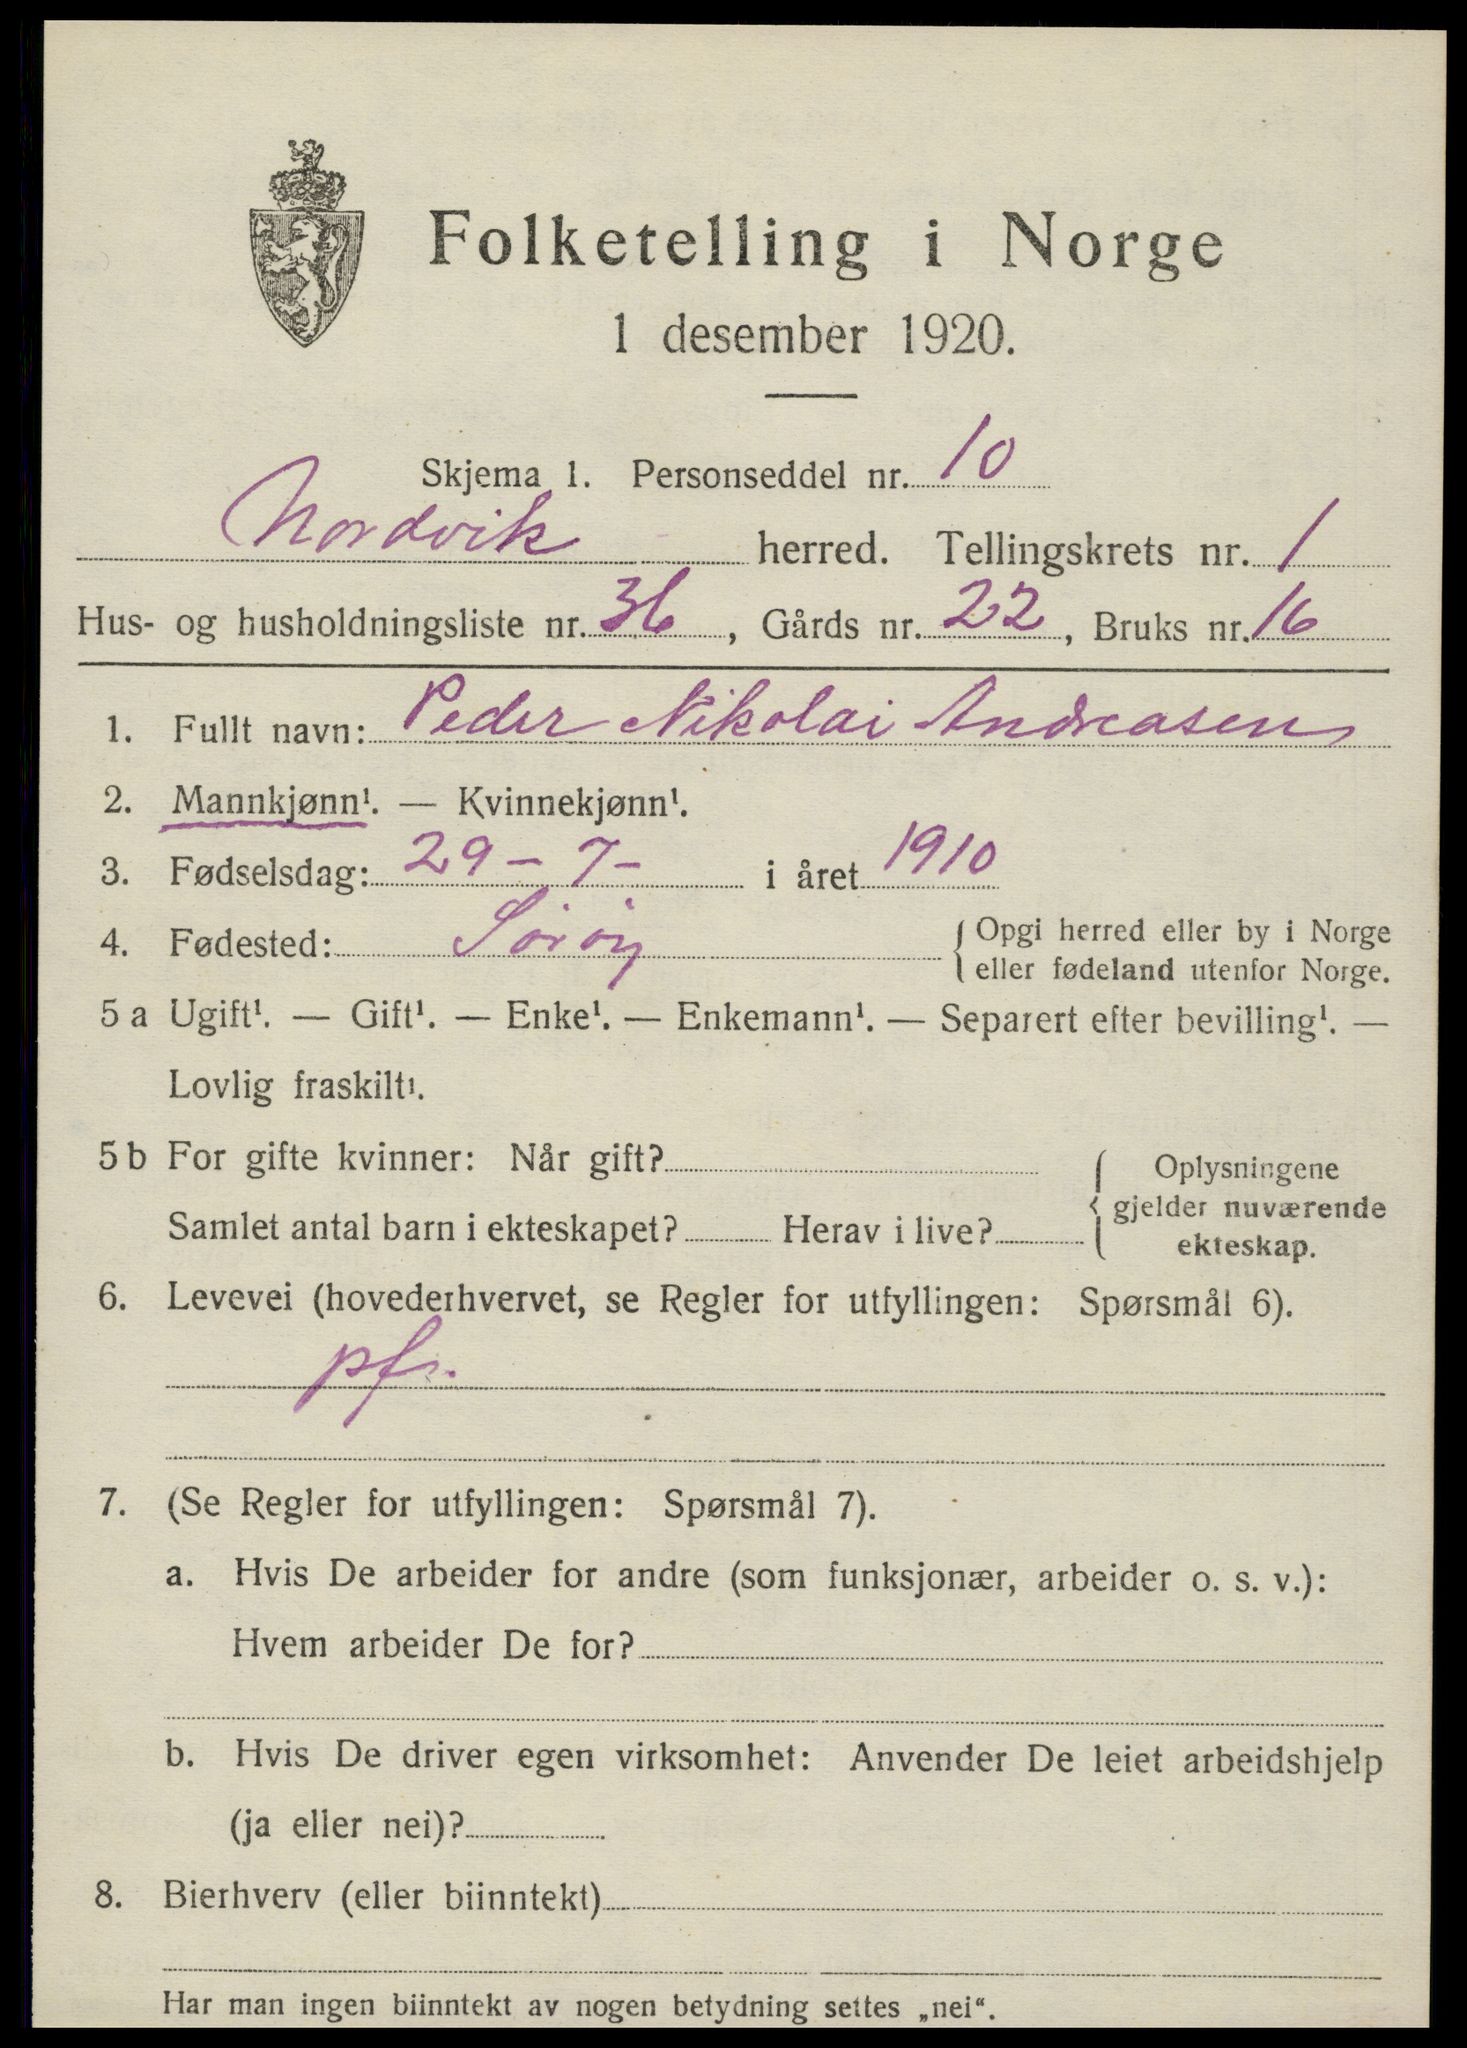 Folketelling i Norge
1 desember 1920.
Skjema 1. Personseddel nr. 10
Nordvik herred. Tellingskrets nr. 1
Hus- og husholdningsliste nr. 36, Gårds nr. 22, Bruks nr. 16
1. Fullt navn: Peder Nikolai Andreasen
2. Mannkjønn¹. — Kvinnekjønn¹.
3. Fødselsdag: 29 - 7 - i året 1910
4. Fødested: Sørøy { Opgi herred eller by i Norge
eller fødeland utenfor Norge.
5 a Ugift¹. — Gift¹. — Enke¹. — Enkemann¹. — Separert efter bevilling¹. —
Lovlig fraskilt¹.
5 b For gifte kvinner: Når gift?
Samlet antal barn i ekteskapet? Herav i live?
{ Oplysningene
gjelder nuværende
ekteskap.
6. Levevei (hovederhvervet, se Regler for utfyllingen: Spørsmål 6).
pfs.
7. (Se Regler for utfyllingen: Spørsmål 7).
a. Hvis De arbeider for andre (som funksjonær, arbeider o. s. v.):
Hvem arbeider De for?
b. Hvis De driver egen virksomhet: Anvender De leiet arbeidshjelp
(ja eller nei)?
8. Bierhverv (eller biinntekt)
Har man ingen biinntekt av nogen betydning settes „nei“.